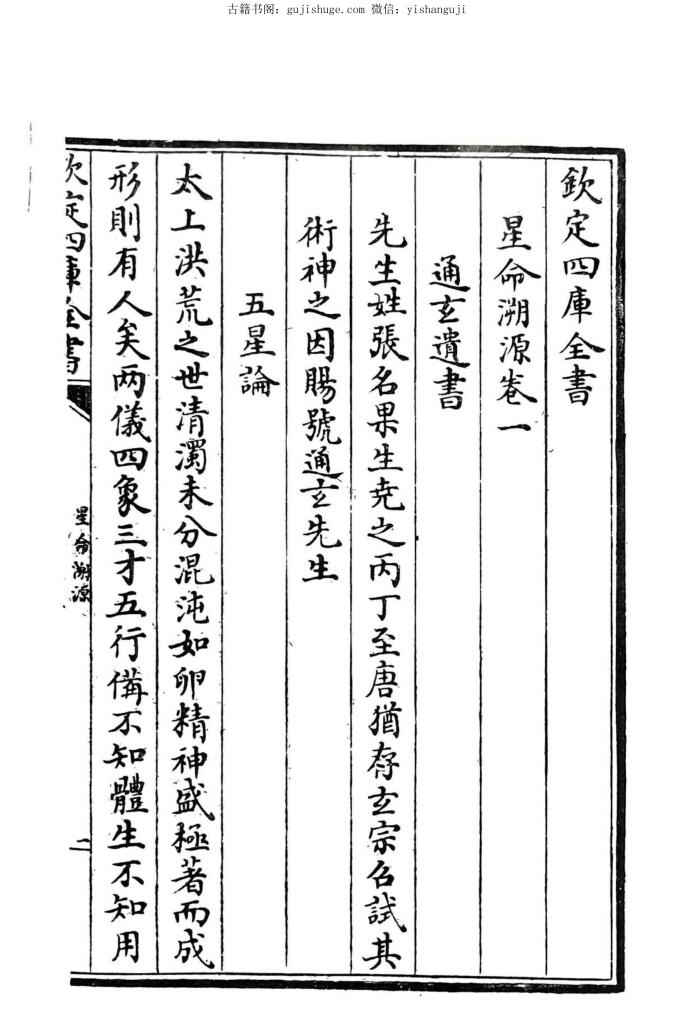 古籍书阁：gujishuge.com 微信：yishanguji
欽定四庫全書
星命溯源卷一
通玄遺書
先生姓張名果生尭之丙丁至唐猶存玄宗名試其
術神之因賜號通玄先生
五星論
太上洪荒之世清濁未分混沌如卵精神盛極著而成
形則有人矣两儀四象三才五行備不知體生不知用
欽定四庫全書
星命溯源
二